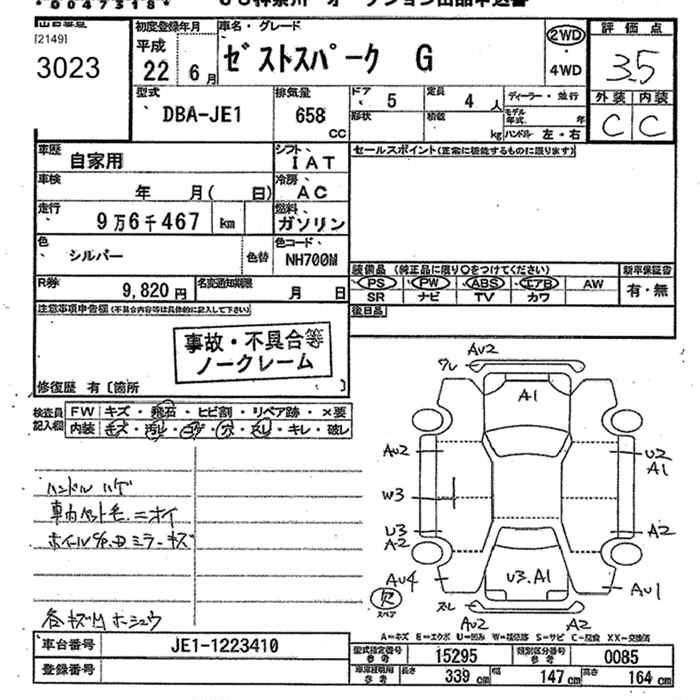 *0047318*
[2149]
3023
初度登録年月
平成
22年 6月
車名・グレード
ゼストスパーク G
2WD
・
4WD
評価点
3.5
外装 内装
C C
型式
DBA-JE1
排気量
658
CC
ドア
5
定員
4 人
ディーラー・並行
形状
積載
kg
モデル年式 年
ハンドル 左・右
車歴
自家用
シフト
IAT
セールスポイント(正常に機能するものに限ります)
車検
年 月( 日)
冷房
AC
走行
9万6千467 km
燃料
ガソリン
色
シルバー
色替
色コード
NH700M
装備品 (純正品に限り○をつけてください)
新車保証書
PS PW ABS エアB AW
有・無
SR ナビ TV カワ
R券
9,820 円
名変通知期限
月 日
後日品
注意事項申告欄(不具合内容等は具体的に記入して下さい)
事故・不具合等
ノークレーム
修復歴 有〔箇所 〕
検査員
記入欄
FW キズ・飛石・ヒビ割・リペア跡・×要
内装 キズ・汚レ・コゲ・穴・スレ・キレ・破レ
ハンドル ハゲ
車内ペット毛.ニオイ
各キズMホーシュウ
AU2
A1
AU2
U2
A1
W3
U3
A2
A2
AU4
U3.A1
AU1
AU2
A2
スペア
A=キズ E=エクボ U=凹み W=補修跡 S=サビ C=腐食 XX=交換済
車台番号
JE1-1223410
型式指定番号
参考
15295
類別区分番号
参考
0085
登録番号
長さ
339 cm
幅
147 cm
高さ
164 cm